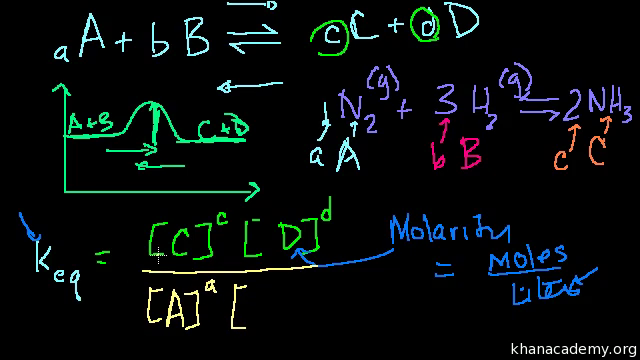 aA + bB ⇌ cC + dD
A+B C+D
1 N₂(g) + 3 H₂(g) ⇌ 2NH₃
a A b B c C
Keq = [C]ᶜ [D]ᵈ
[A]ᵃ [
Molarity
= Moles
Liter
khanacademy.org